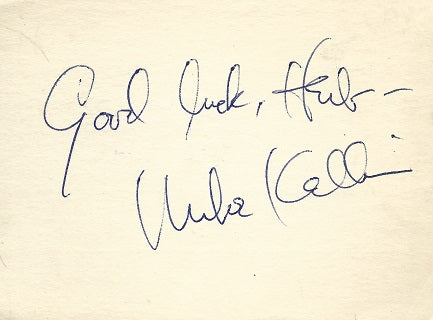 Good luck, Herb -
Mike Kellin